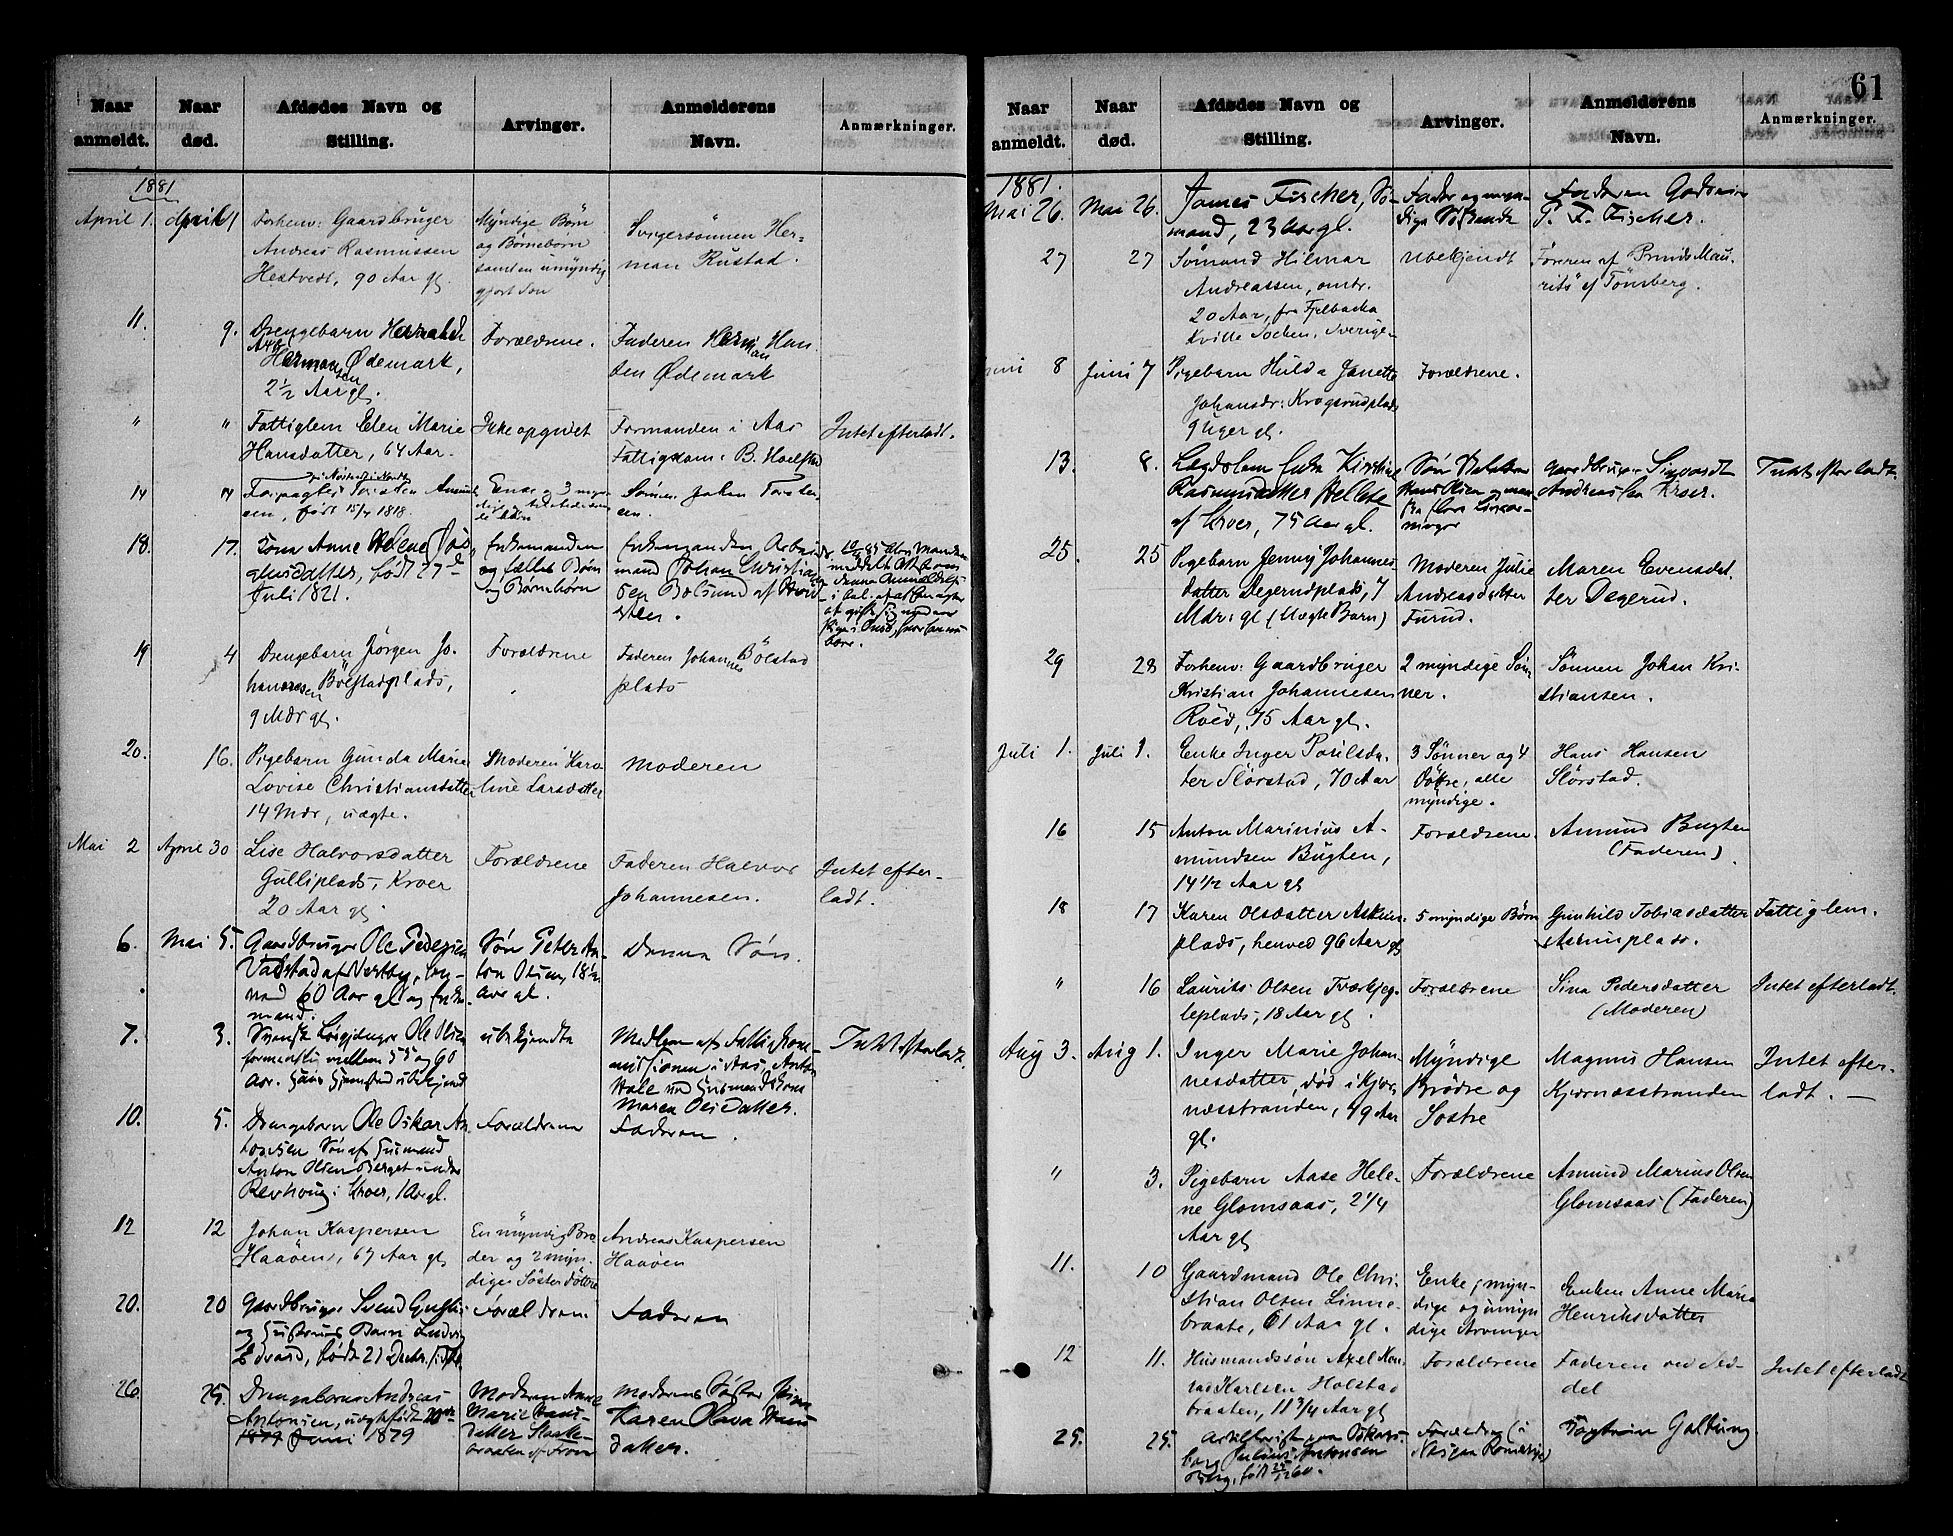 61
Naar anmeldt. Naar død. Afdødes Navn og Stilling. Arvinger. Anmelderens Navn. Anmærkninger.
1881
April 1. April 1
Forhenv: Gaardbruger
Andreas Rasmussen
Hestvedt, 90 Aar gl.
Myndige Børn
og Børnebørn
samt en umyndig
gjort Søn
Svigersønnen Her=
man Rustad.
11. 9.
Drengebarn
Herman Ødemark,
2½ Aar gl.
Forældrene.
Faderen Herman Han
sen Ødemark
" "
Fattiglem Elen Marie
Hansdatter, 64 Aar.
Ikke opgivet
Formanden i Aas
Fattigkom: B.
Intet efterladt.
14 14
Torsten
født 15/7 1818.
Enke og 3
Sønnen Johan Torsten
sen.
18. 17.
Kona Anne Helene
datter, født 27de
Juli 1821.
Enkemanden
og fælles Børn
og Børnebørn
Enkemanden Arbeids
mand Johan Christian
sen
19 4
Drengebarn Jørgen Jo-
hannesen Bölstadplads,
9 Mdr gl.
Forældrene
Faderen Johannes Bölstad
plads
20. 16.
Pigebarn Gunda Marie
Lovise Christiansdatter
14 Mdr, uægte.
Moderen Karo
line Larsdatter
Moderen
Mai 2 April 30
Lise Halvorsdatter
Gulliplads, Kroer
20 Aar gl.
Forældrene
Faderen Halvor
Johannesen.
Intet efter-
ladt.
6. Mai 5.
Gaardbruger Ole Pedersen
Vadstad af Nordby, om-
60 Aar gl og Enke
mand.
Søn Peter An-
ton Olsen, 18½
Aar gl.
Denne Søn.
7. 3.
Svensk Ole Olsen
mellem 55 og 60
Aar. Hans Hjemsted ubekjendt
ubekjendte
Medlem af Fattigkom-
missionen i Aas, Anton
Hole ved Husmandskone
Maren Olsdatter.
Intet efterladt.
10. 5.
Drengebarn Ole Oskar An
tonsen Søn af Husmand
Anton Olsen Berget under
Revhoug i Kroer, 1 Aar gl.
Forældrene
Faderen.
12 12
Johan Kaspersen
Haaöen, 67 Aar gl
En myndig Bro
der og 2 myn-
dige Søsterdöttre
Andreas Kaspersen
Haaöen
20. 20
Gaardbruger Svend
og Hustrues Barn Ludvig
Edvard, født 21 Decbr.
Forældrene
Faderen
26. 25.
Drengebarn Andreas
Antonsen, uægte født 20de
1879 Juni 1879
Moderen Anne
Marie Hans-
datter
braaten af Frogn
Moderens Søster Pige
Karen Olava Hans
datter.
Naar anmeldt. Naar død. Afdødes Navn og Stilling. Arvinger. Anmelderens Navn. Anmærkninger.
1881.
Mai 26. Mai 26.
James Fischer, Sø-
mand, 23 Aar gl.
Fader og myn-
dige Søskende
Faderen Godseier
T. F. Fischer.
27 27
Sømand Hilmar
Andreassen, omtr.
20 Aar, fra Fjelbacka
Kville Socken, Sverige
ubekjendt
Føreren af "Prinds Mau-
rits" af Tönsberg.
8 Juni 7
Pigebarn Hulda Janette
Johansdr: Krogsrudplads
9 Uger gl.
Forældrene.
13. 8.
Lægdslem Enke Kirstine
Rasmusdatter
af Kroer, 75 Aar gl.
Gaardbruger Sigvardt
Andreassen Krser.
Intet efterladt.
25. 25
Pigebarn Jenny Johannes-
datter Degerudplads, 7
Mdr: gl (Uægte Barn)
Moderen Julie
Andreasdatter
Furud.
Maren Evensdat
ter Degerud.
29 28
Forhenv: Gaardbruger
Kristian Johannesen
Roed, 75 Aar gl.
2 myndige Søn-
ner.
Sönnen Johan Kri-
stiansen.
Juli 1. Juli 1.
Enke Inger Poulsda-
ter Slörstad, 70 Aar
3 Sönner og 4
Döttre, alle
myndige.
Hans Hansen
Slörstad.
16 15
Anton Marinius A-
mundsen Bugten,
14 1/2 Aar gl
Forældrene.
Amund Bugten
(Faderen).
18 17
Karen Olsdatter Askim-
plads, henved 96 Aar gl
5 myndige Børn
Gunhild Tobiasdatter
Askimplads.
Fattiglem.
" 16
Laurits Olsen Tværkjeg-
leplads, 18 Aar gl.
Forældrene
Sina Pedersdatter
(Moderen)
Intet efterladt.
Aug 3. Aug 1.
Inger Marie Johan-
nesdatter, død i Kjær-
næsstranden, 49 Aar
gl.
Myndige
Brödre og
Søstre
Magnus Hansen
Kjærnæsstranden
Intet efter-
ladt. —
" 3.
Pigebarn Aase Hele-
ne Glomsaas, 2 1/4
Aar gl
Forældrene
Amund Marius Olsen
Glomsaas (Faderen)
11. 10
Gaardmand Ole Chri-
stian Olsen Linne-
braate, 61 Aar gl.
Enke, myn-
dige og umyn
dige Arvinger
Enken Anne Maria
Henriksdatter
12 11.
Husmandssön Axel Kon-
rad Karlsen Holstad
braaten, 11 3/4 Aar gl
Forældrene
Faderen ved Sed-
del
Intet efterladt
25. 25.
Artillerist paa Oskars-
borg Julius Antonsen
Berg, født 60.
Forældre (i
Kaptein Galtung